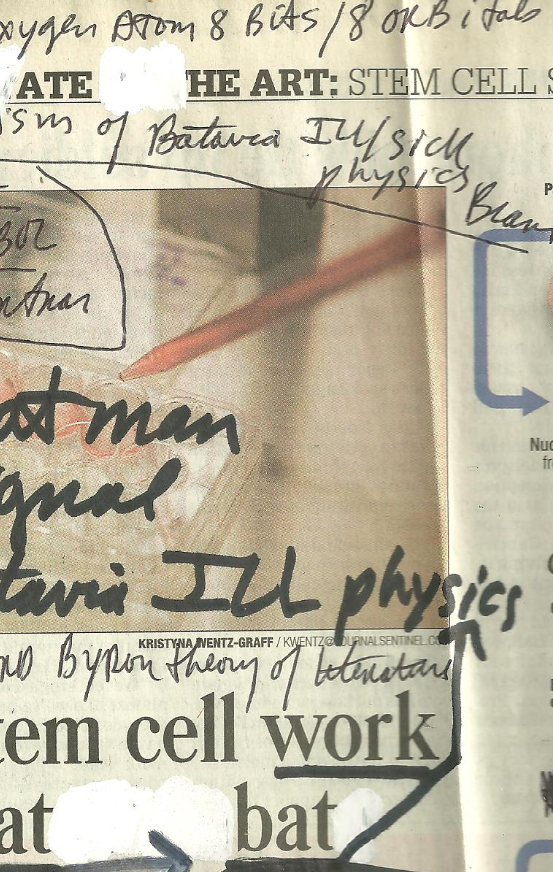 xygen Atom 8 Bits / 8 ORBitals
ATE HE ART: STEM CELL S
ism of Batavia Ill/sick
physics
P
Bram
BOL
at man
gnal
tavia ILL physics
Nuc
fr
KRISTYNA WENTZ-GRAFF / KWENTZ@JOURNALSENTINEL.CO
ND Byron theory of literature
tem cell work
at bat